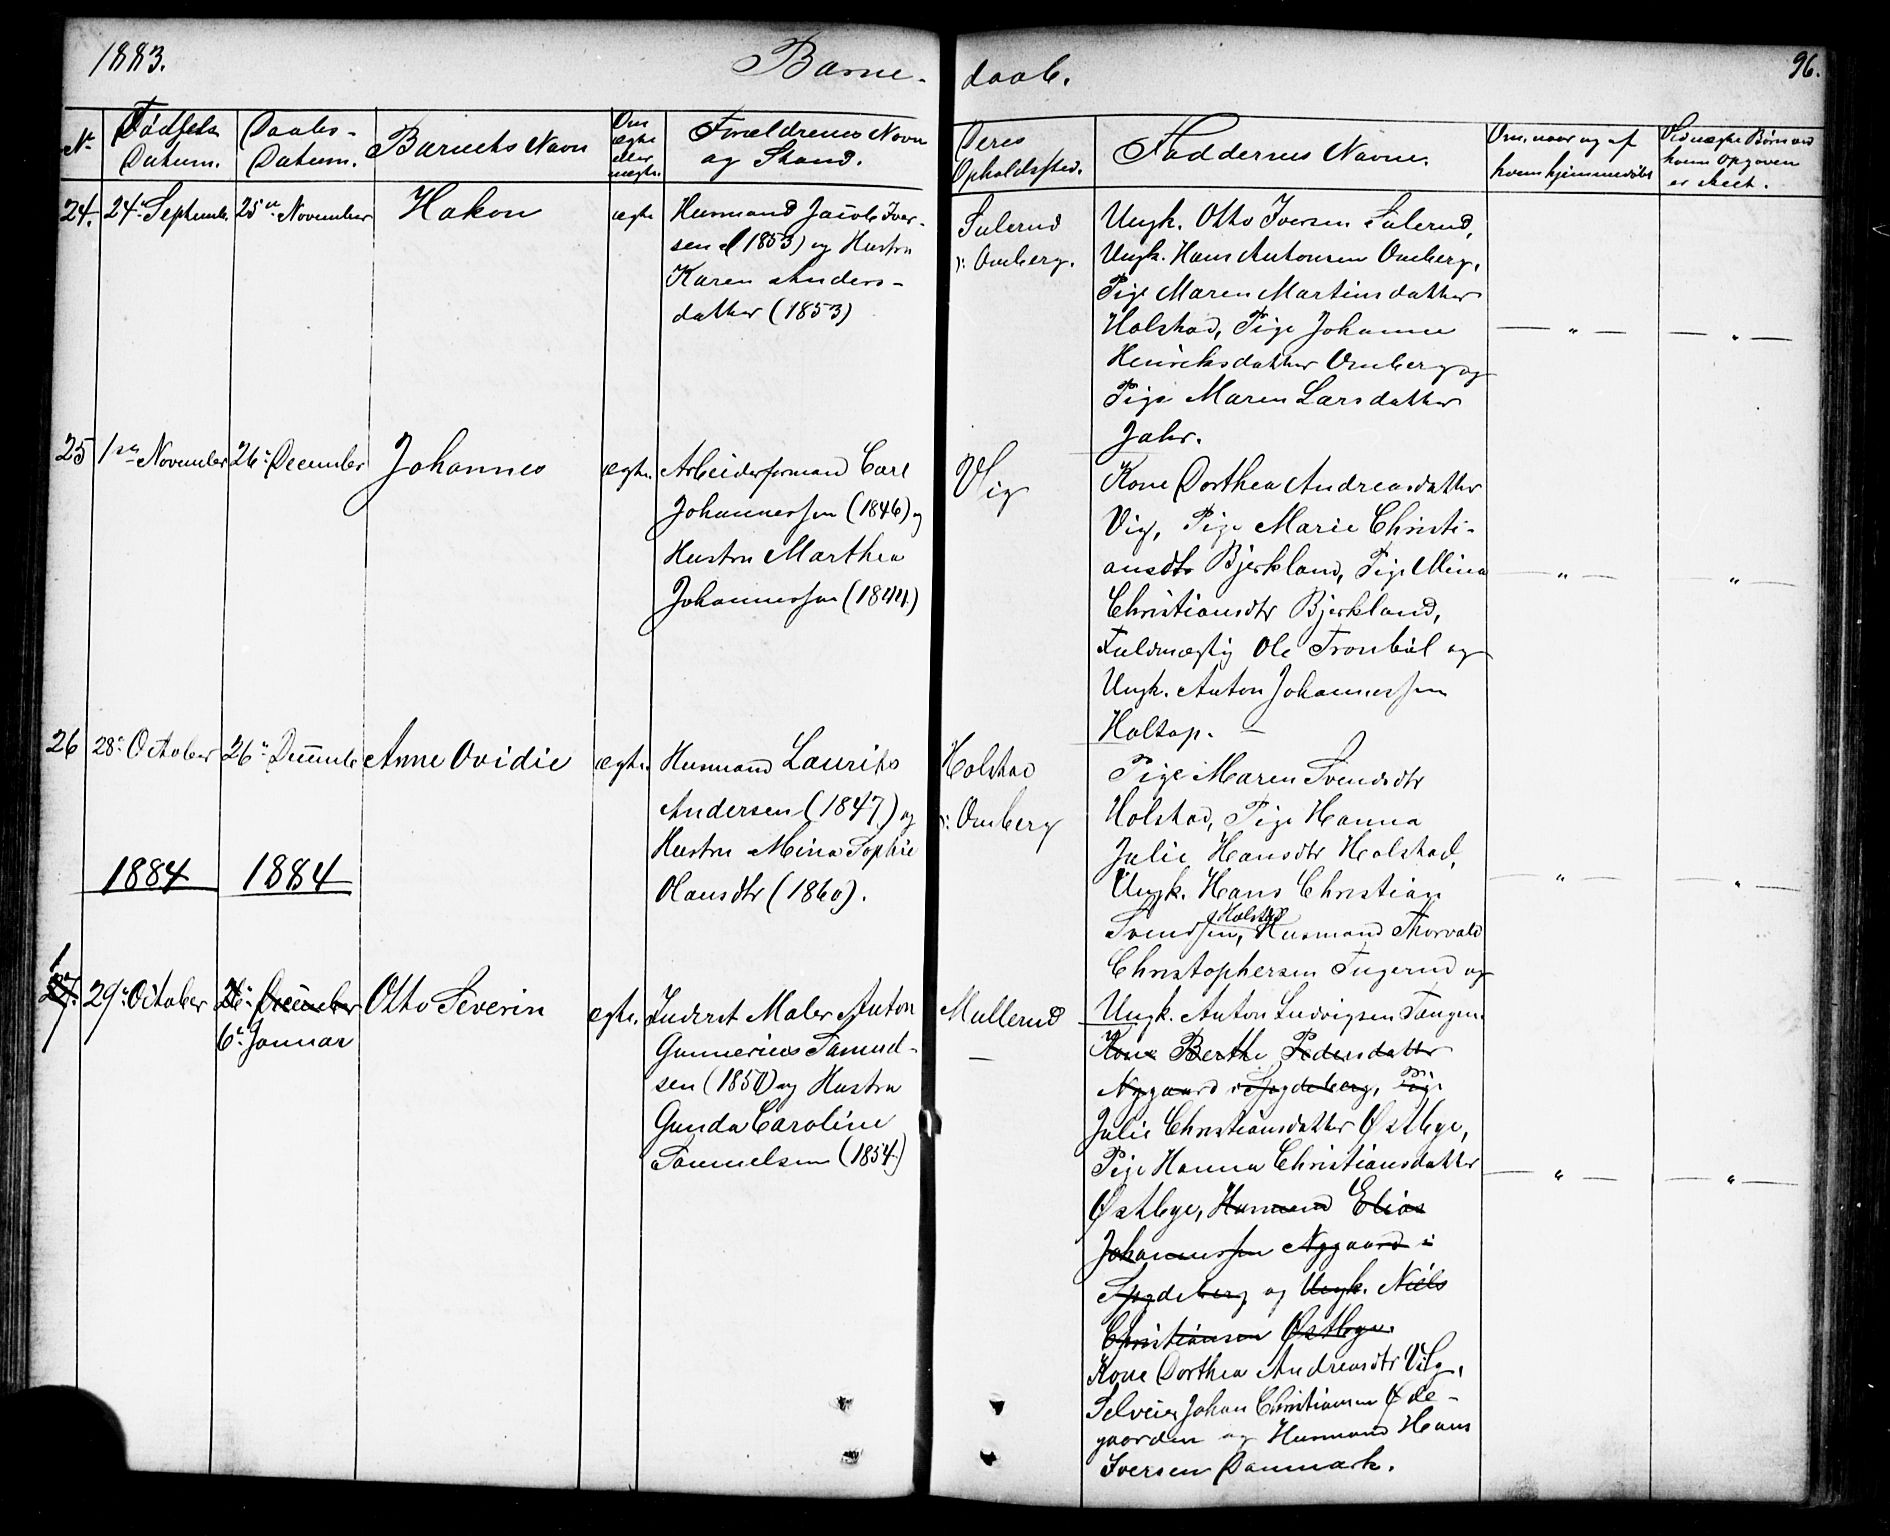 1883.
Barne-
daab.
96.
No
Fødsels
Datum.
Daabs-
Datum.
Barnets Navn
Om
ægte
eller
uægte.
Forældrenes Navn
og Stand.
Deres
Opholdssted.
Faddernes Navne.
Om, naar og af
hvem hjemmedøbt
Ved uægte Børn ved
hvem Opgaven
er skeet.
24.
24e Septembr.
25de November
Hakon
ægte
Husmand Jacob Iver-
sen (1853) og Hustru
Karen Anders-
datter (1853)
Sulerud
v: Omberg.
Ungk. Otto Iversen Sulerud,
Ungk. Hans Antonsen Omberg,
Pige Maren Martinsdatter
Holstad, Pige Johanne
Henriksdatter Omberg og
Pige Maren Larsdatter
Jahr.
— " —
— " —
25
1ste November
26e December
Johannes
ægte.
Arbeidsformand Carl
Johannessen (1846) og
Hustru Marthea
Johannessen (1844)
Vig
Kone Dorthea Andreasdatter
Vig, Pige Marie Christi-
ansdtr Bjerkland, Pige Mina
Christiansdtr Bjerkland,
Fuldmægtig Ole Tronbøl og
Ungk. Anton Johannessen
Holtop. —
— " —
— " —
26
28e October
26e Decembr
Anne Ovidie
ægte.
Husmand Laurits
Andersen (1847) og
Hustru Mina Sophie
Olausdtr (1860).
Holstad
v: Omberg
Pige Maren Svendsdtr
Holstad, Pige Hanna
Julie Hansdtr Holstad,
Ungk. Hans Christian
Svendsen, Holstad Husmand Thorvald
Christophersen Tugerud og
Ungk. Anton Ludvigsen Tangen.
— " —
— " —
1884
1884
1
27.
29e October
26e December
6e Januar
Otto Severin
ægte.
Inderst Maler Anton
Gunnerius Samuel-
sen (1850) og Hustru
Gunda Caroline
Samuelsen (1854)
Mullerud
—
Kone Berthe Pedersdatter
Nygaard i Spydeberg, Pige
Julie Christiansdatter Østbye,
Pige Hanna Christiansdatter
Østbye, Husmand Elias
Johannessen Nygaard i
Spydeberg og Ungk. Niels
Christiansen Østbye.
Kone Dorthea Andreasdtr Vig,
Selveier Johan Christiansen Øde-
gaarden og Husmand Hans
Iversen Danmark.
— " —
— " —